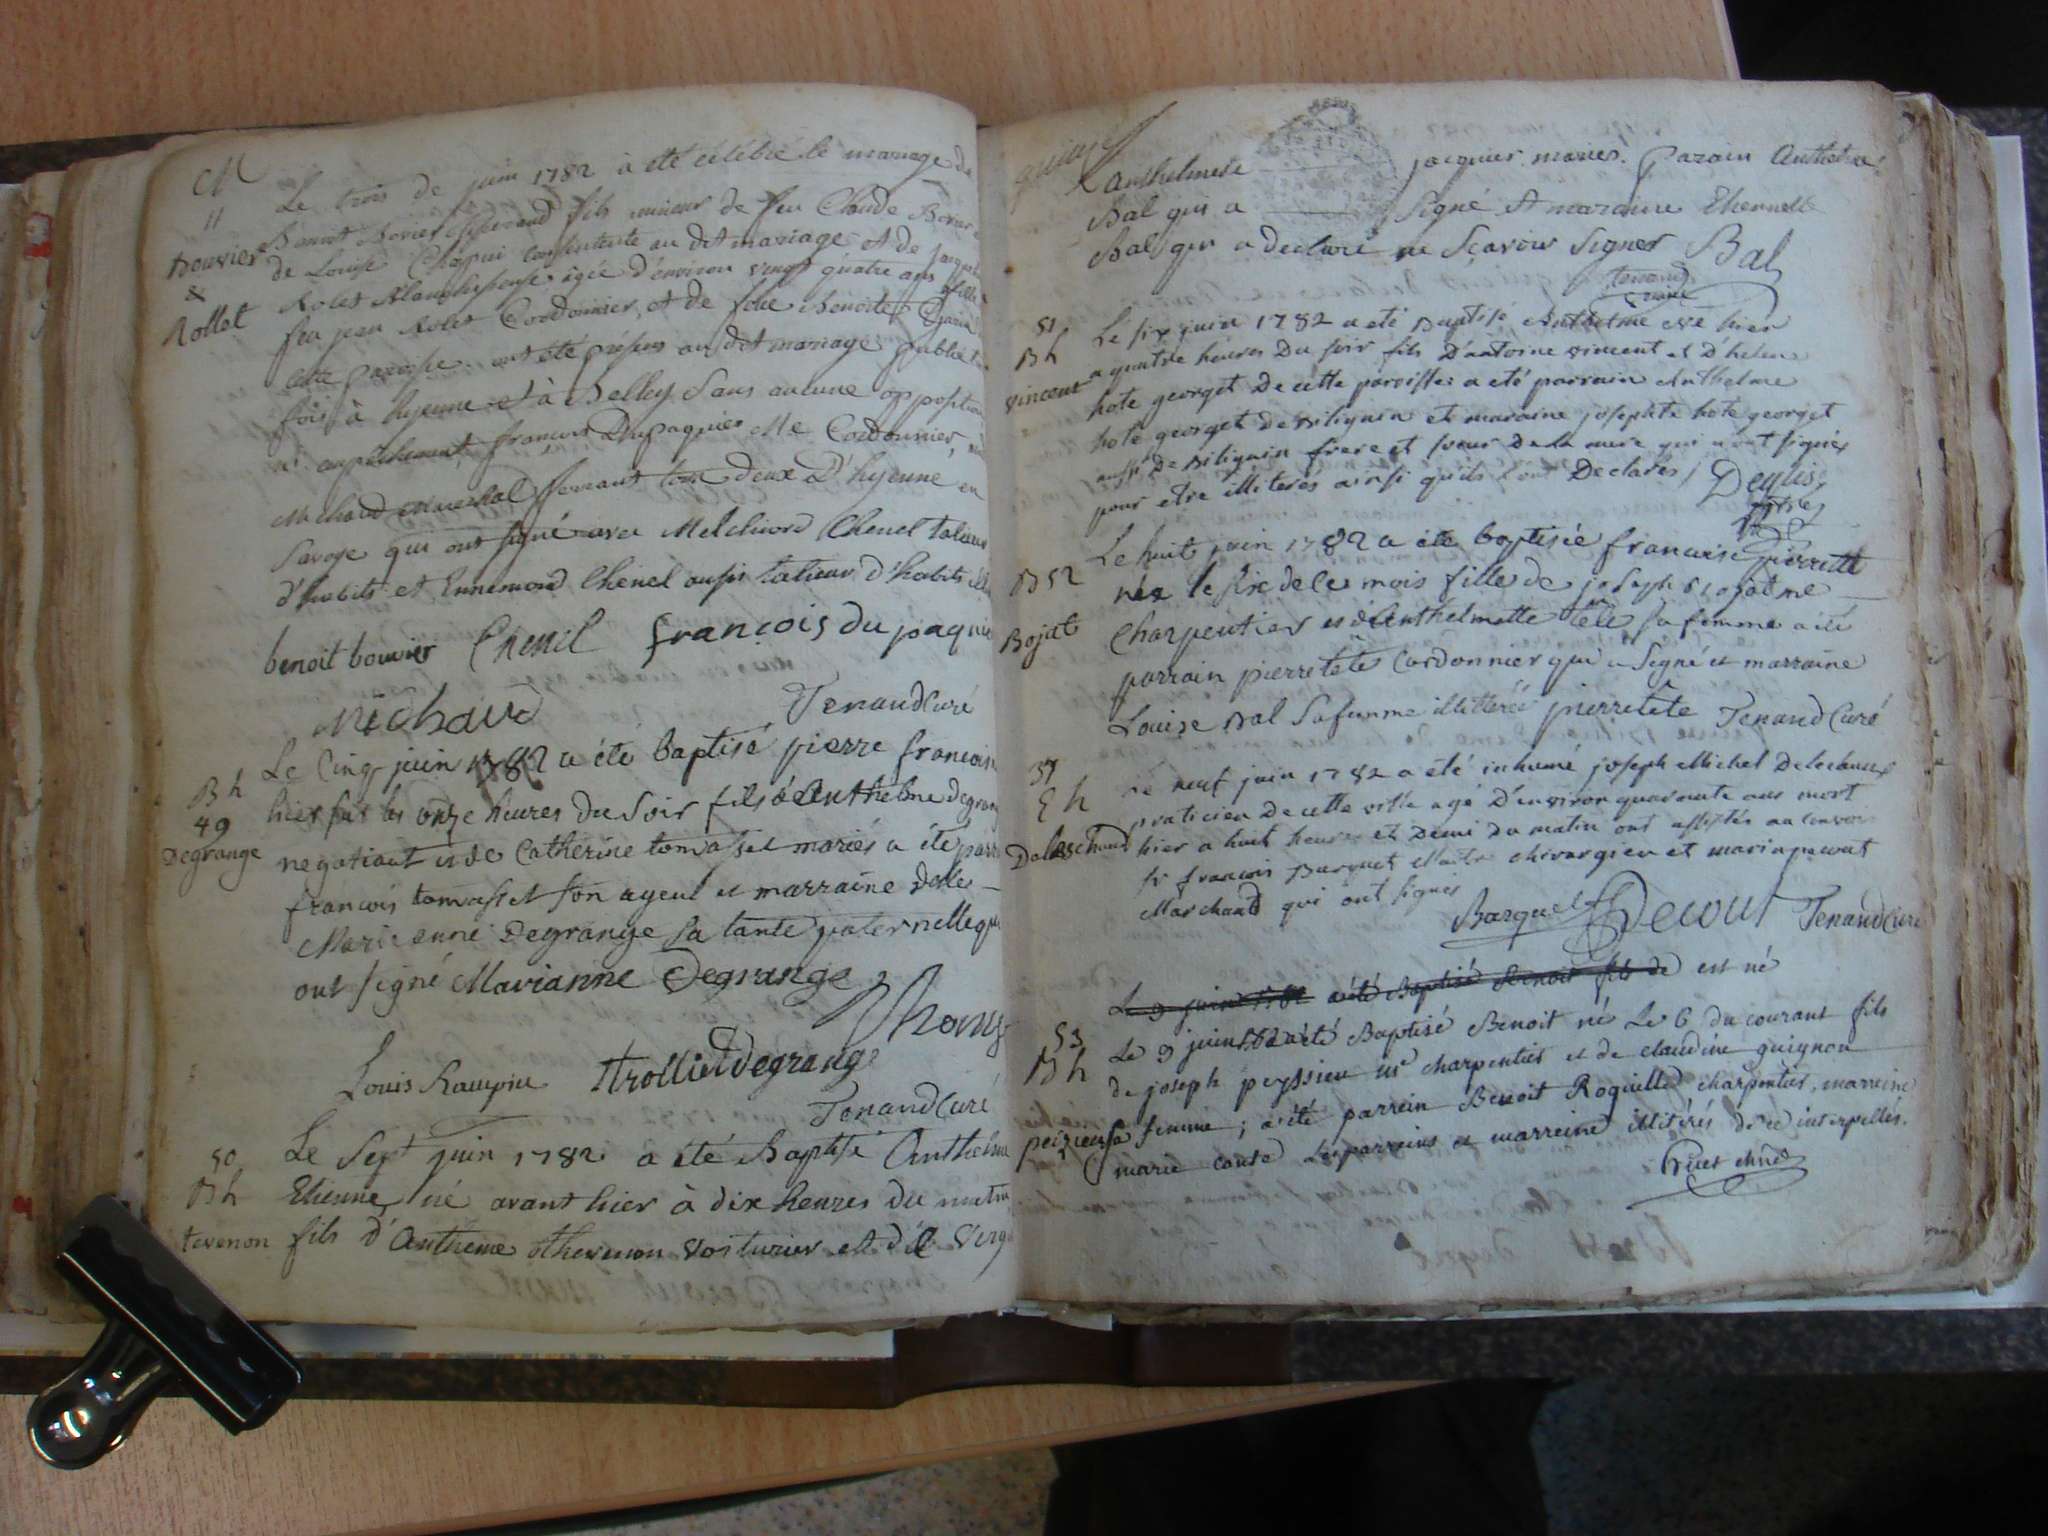 M
11
Bouvier
&
Rollet
Le trois de juin 1782 à été célébré le mariage de
Benoit Bovier fils mineur de feu Claude Bovier
de Louise Chapui consentente au dit mariage et de
Rolet Blanchisseuse âgée d'environ vingt quatre ans fille
feu jean Rolet Cordonnier, et de feüe Benoite
cette paroisse ont été au dit mariage publié
fois à hyenne et à Belley Sans aucune opposition
ni empêchement françois Dupaquier Me Cordonnier,
Michaud Marechal ferrant tous deux D'hyenne, en
Savoye qui ont signé avec Melchiord Chenel talieur
d'habits et Ennemond Chenel aussi talieur d'habits
benoit bouvier Chenel françois du paquie
Michaud Tenand Curé
B h
49
Degrange
Le Cinq juin 1782 a été baptisé pierre francois
hier sur les onze heures du Soir fils d'Anthelme degrang
negotiant et de Catherine tomasset mariés a été parr
francois tomasset son ayeul et marraine Delle
Marianne Degrange sa tante paternelle qui
ont signé Marianne Degrange
Louis Rampin trolliet degrange
Tenand Curé
50
B h
tevenon
Le Sept juin 1782 a été Baptisé Anthelme
Etienne né avant hier à dix heures du matin
fils d'Antheme thevenon voiturier et d'
Anthelmete jacquier mariés. Parain Anthelme
Bal qui a signé et maraine Ethennette
Bal qui a declaré ne Scavoir Signer Bal
tenand
curé
51
B h
vincent
Le six juin 1782 a eté Baptisé Anthelme né hier
a quatre heures Du soir fils D'antoine vincent et D'helene
hote georget De cette paroisse: a eté parrain Anthelme
hote georget de Billignin et maraine josephte hote georget
aussi De Billignin frere et soeur De la mere qui n'ont signés
pour etre illiterés ainsi qu'ils l'ont Declarés
B 52
Bojat
Le huit juin 1782 a été baptisée francoise pierrette
née le six de ce mois fille de joseph Bojat me
Charpentier et d'Anthelmette tête sa femme a été
parrain pierre tête Cordonnier qui a Signé et marraine
Louise Bal Sa femme illittérée pierre tête Tenand Curé
37
E h
Deleschaud
Le neuf juin 1782 a eté inhumé joseph Michel Deleschaux
praticien de cette ville agé D'environ quarante ans mort
hier a huit heures et Demi du matin ont assistés au convoi
sr francois Barquet Maitre chirurgien et
Marchand qui ont signés
Barquet Decout Tenand Curé
Le 9 juin 1782 a été Baptisé Benoit fils de est né
53
B h
peizieu
Le 9 juin 1782 a été Baptisé Benoit né Le 6 du courant fils
de joseph peyssieu me charpentier et de claudine guignon
sa femme; a été parrein Benoit Roquille charpentier, marreine
marie Les parreins et marreine illitérés de ce interpellés.